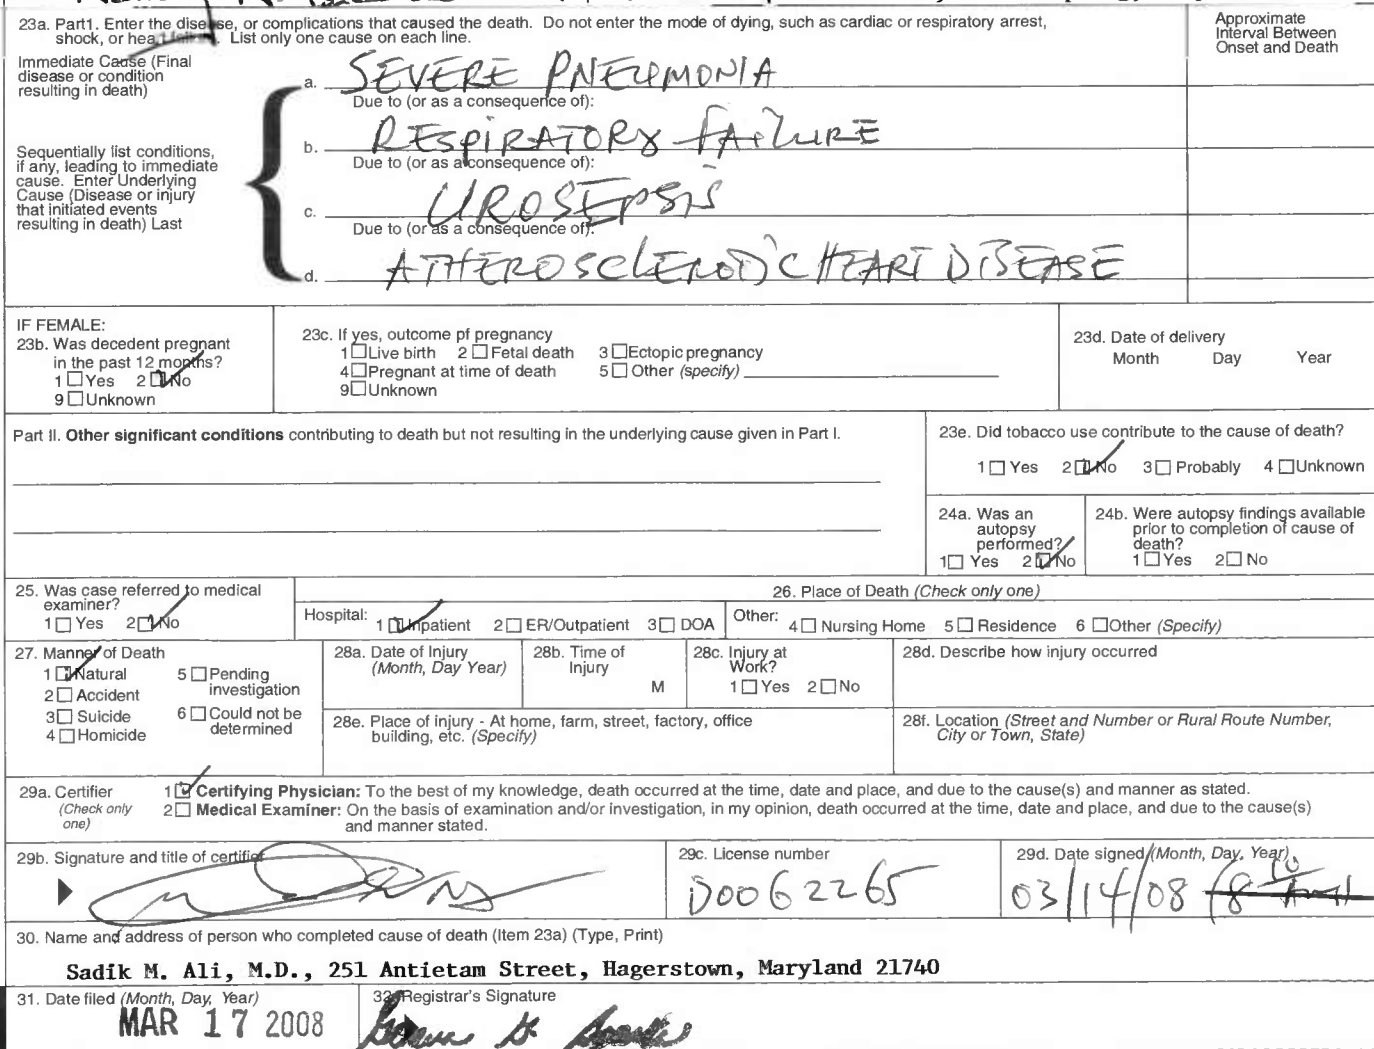 23a. Part1. Enter the disease, or complications that caused the death. Do not enter the mode of dying, such as cardiac or respiratory arrest,
shock, or heart failure. List only one cause on each line.
Approximate
Interval Between
Onset and Death
Immediate Cause (Final
disease or condition
resulting in death)
a. SEVERE PNEUMONIA
Due to (or as a consequence of):
b. RESPIRATORY FAILURE
Due to (or as a consequence of):
Sequentially list conditions,
if any, leading to immediate
cause. Enter Underlying
Cause (Disease or injury
that initiated events
resulting in death) Last
c. UROSEPSIS
Due to (or as a consequence of):
d. ATHEROSCLEROTIC HEART DISEASE
IF FEMALE:
23b. Was decedent pregnant
in the past 12 months?
1 ☐ Yes 2 ☑ No
9 ☐ Unknown
23c. If yes, outcome pf pregnancy
1 ☐ Live birth 2 ☐ Fetal death 3 ☐ Ectopic pregnancy
4 ☐ Pregnant at time of death 5 ☐ Other (specify)
9 ☐ Unknown
23d. Date of delivery
Month Day Year
Part II. Other significant conditions contributing to death but not resulting in the underlying cause given in Part I.
23e. Did tobacco use contribute to the cause of death?
1 ☐ Yes 2 ☑ No 3 ☐ Probably 4 ☐ Unknown
24a. Was an
autopsy
performed?
1 ☐ Yes 2 ☑ No
24b. Were autopsy findings available
prior to completion of cause of
death?
1 ☐ Yes 2 ☐ No
25. Was case referred to medical
examiner?
1 ☐ Yes 2 ☑ No
26. Place of Death (Check only one)
Hospital: 1 ☑ Inpatient 2 ☐ ER/Outpatient 3 ☐ DOA Other: 4 ☐ Nursing Home 5 ☐ Residence 6 ☐ Other (Specify)
27. Manner of Death
1 ☑ Natural 5 ☐ Pending
investigation
2 ☐ Accident
3 ☐ Suicide 6 ☐ Could not be
determined
4 ☐ Homicide
28a. Date of Injury
(Month, Day Year)
28b. Time of
Injury
M
28c. Injury at
Work?
1 ☐ Yes 2 ☐ No
28d. Describe how injury occurred
28e. Place of injury - At home, farm, street, factory, office
building, etc. (Specify)
28f. Location (Street and Number or Rural Route Number,
City or Town, State)
29a. Certifier
(Check only
one)
1 ☑ Certifying Physician: To the best of my knowledge, death occurred at the time, date and place, and due to the cause(s) and manner as stated.
2 ☐ Medical Examiner: On the basis of examination and/or investigation, in my opinion, death occurred at the time, date and place, and due to the cause(s)
and manner stated.
29b. Signature and title of certifier
29c. License number
D0062265
29d. Date signed (Month, Day, Year)
03/14/08
30. Name and address of person who completed cause of death (Item 23a) (Type, Print)
Sadik M. Ali, M.D., 251 Antietam Street, Hagerstown, Maryland 21740
31. Date filed (Month, Day, Year)
MAR 17 2008
32. Registrar's Signature